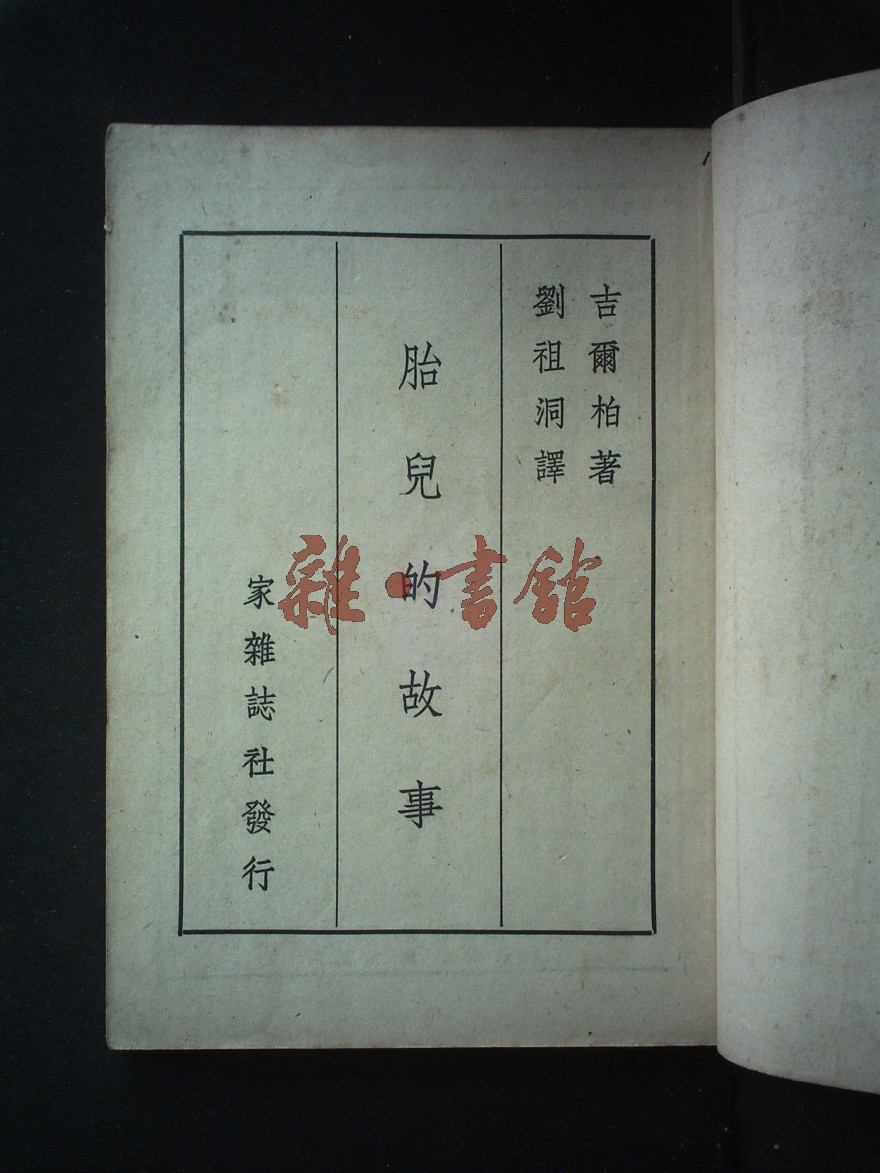 吉爾柏著
劉祖洞譯
胎兒的故事
家雜誌社發行
雜·書館